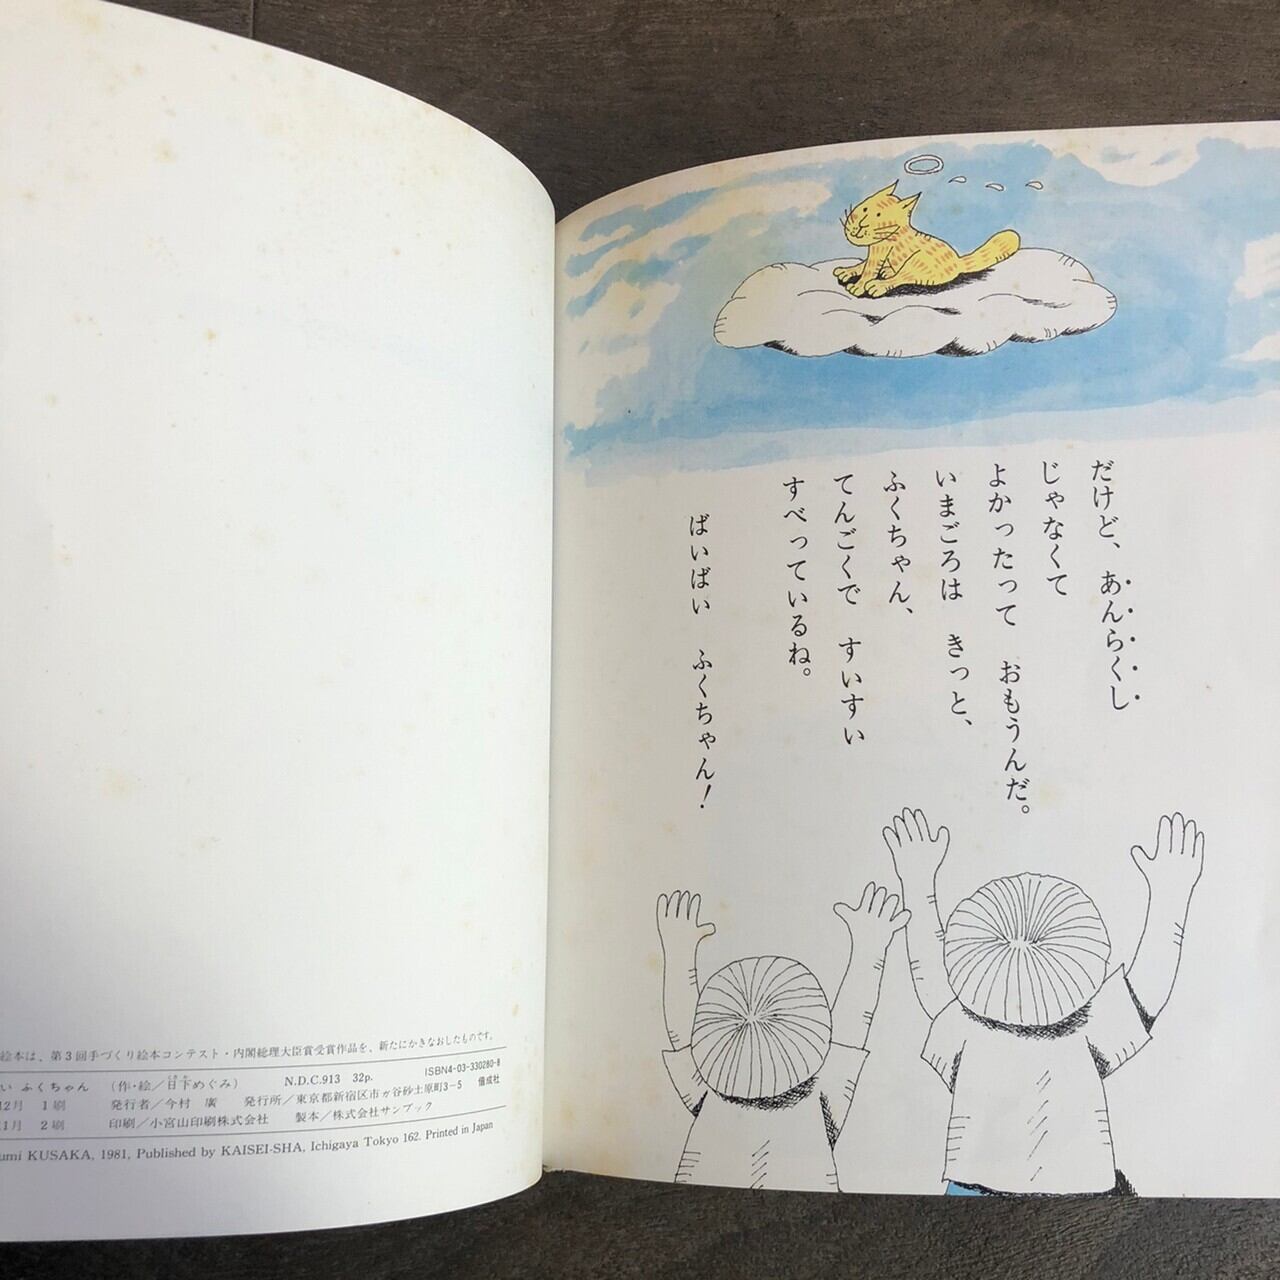 だけど、あんらくし
じゃなくて
よかったって　おもうんだ。
いまごろは　きっと、
ふくちゃん、
てんごくで　すいすい
すべっているね。
ばいばい　ふくちゃん！
絵本は、第3回手づくり絵本コンテスト・内閣総理大臣賞受賞作品を、新たにかきなおしたものです。
い ふくちゃん （作・絵／日下めぐみ） N.D.C.913 32p. ISBN4-03-330280-8
2月 1刷 発行者／今村 廣 発行所／東京都新宿区市ヶ谷砂土原町3－5 偕成社
1月 2刷 印刷／小宮山印刷株式会社 製本／株式会社サンブック
umi KUSAKA, 1981, Published by KAISEI-SHA, Ichigaya Tokyo 162. Printed in Japan